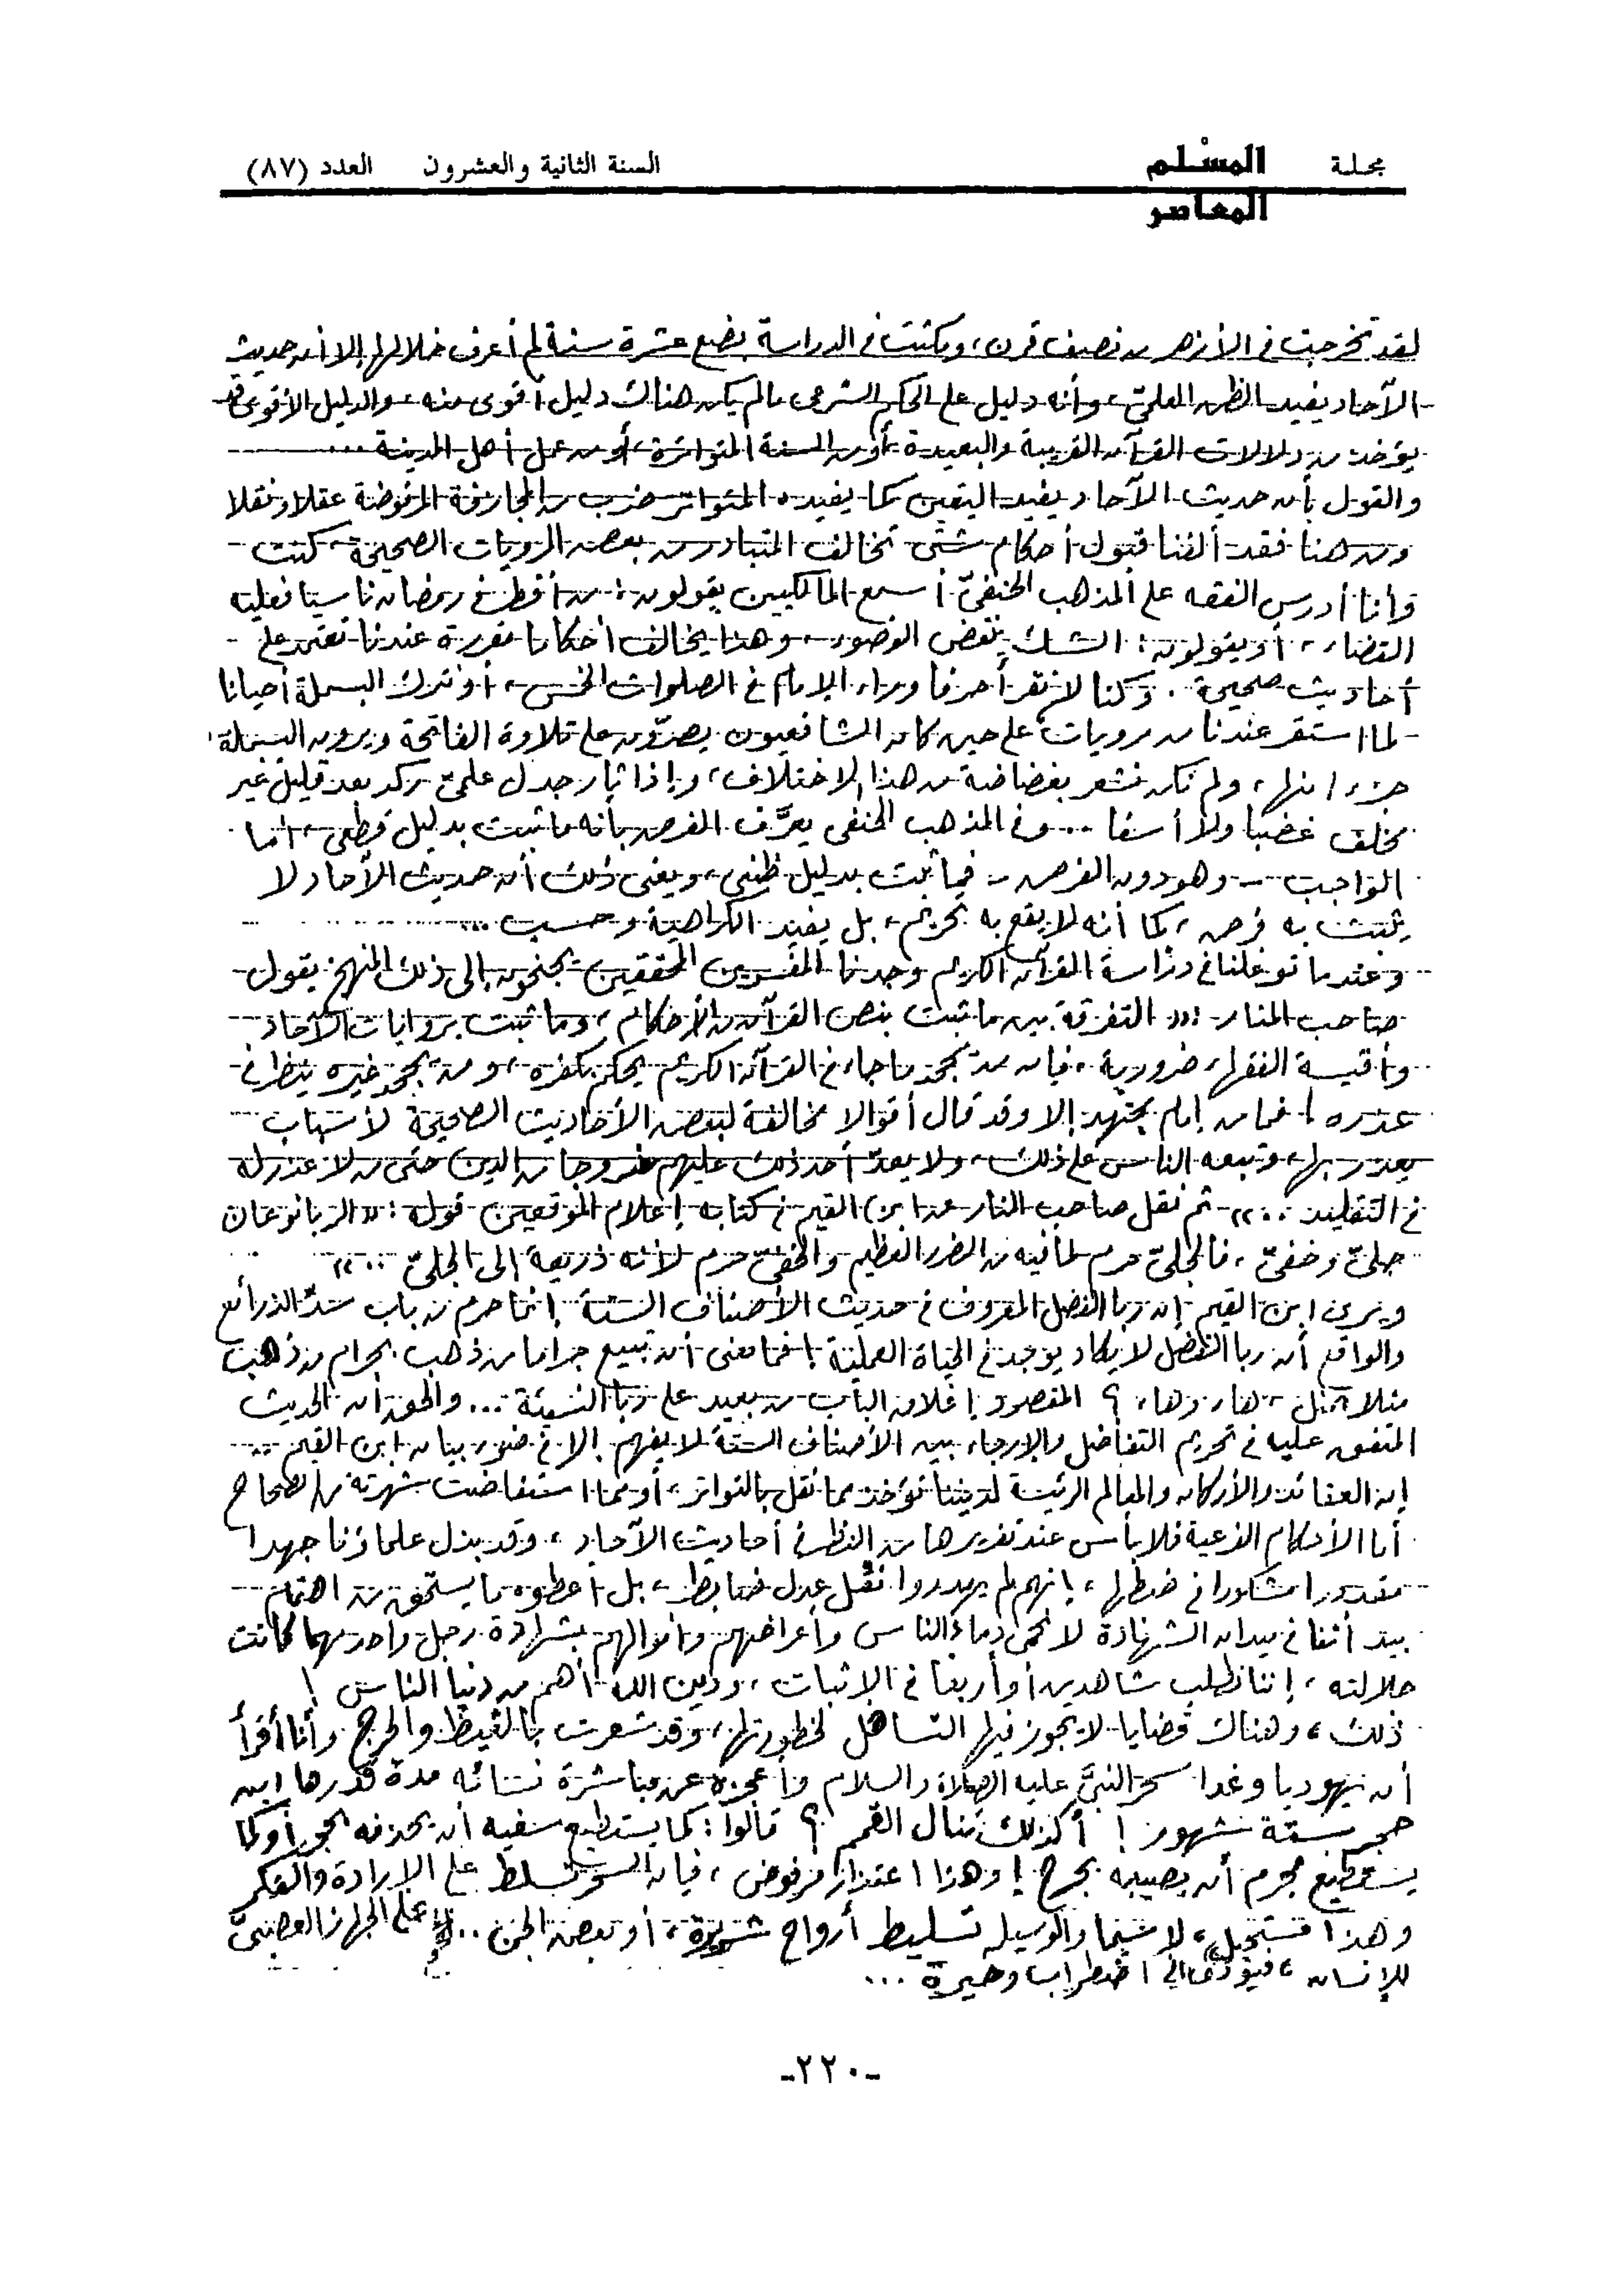 مجلة المسْلم المعاصر السنة الثانية والعشرون العدد (٨٧)
لقد تخرجت فى الأزهر من نصف قرن، ومكثت فى الدراسة بضع عشرة سنة لم أعرف خلالها إلا أن حديث
الآحاد يفيد الظن العلمىّ، وأنه دليل على الحكم الشرعى مالم يكن هناك دليل أقوى منه، والدليل الأقوى قد
يؤخذ من دلالات القرآن القريبة والبعيدة، أو من السنة المتواترة، أو من عمل أهل المدينة ...
والقول بأن حديث الآحاد يفيد اليقين كما يفيده المتواتر ضرب من المجازفة المرفوضة عقلا ونقلا
ومن هنا فقد ألفنا قبول أحكام شتى تخالف المتبادر من بعض المرويات الصحيحة، كنت
وأنا أدرس الفقه على المذهب الحنفىّ أسمع المالكيين يقولون: من أفطر فى رمضان ناسيا فعليه
القضاء، أو يقولون: الشك ينقض الوضوء، وهذا يخالف أحكاما مقررة عندنا تعتمد على
أحاديث صحيحة. وكنا لا نقرأ حرفا وراء الإمام فى الصلوات الخمس، أو نترك البسملة أحيانا
لما استقر عندنا من مرويات على حين كان الشافعيون يصرّون على تلاوة الفاتحة ويرون البسملة
جزءا منها، ولم نكن نشعر بغضاضة من هذا الاختلاف، وإذا ثار جدل علمىّ ركد بعد قليل غير
مخلف غضبا ولا أسفا ... وفى المذهب الحنفى يعرَّف الفرض بأنه ما ثبت بدليل قطعى، أما
الواجب - وهو دون الفرض - فما ثبت بدليل ظنى، ويعنى ذلك أن حديث الآحاد لا
يثبت به فرض، كما أنه لا يقع به تحريم، بل يفيد الكراهية وحسب ...
وعندما توغلنا فى دراسة القرآن الكريم وجدنا المفسرين المحققين يجنحون إلى ذلك المنهج يقول
صاحب المنار: «التفرقة بين ما ثبت بنص القرآن من الأحكام، وما ثبت بروايات الآحاد
وأقيسة الفقهاء ضرورية، فإن من يجحد ما جاء فى القرآن الكريم يحكم بكفره، ومن يجحد غيره ينظر فى
عذره! فما من إمام مجتهد إلا وقد قال أقوالا مخالفة لبعض الأحاديث الصحيحة لأسباب
يعذر بها، وتبعه الناس على ذلك، ولا يعدّ أحد ذلك عليهم خروجا من الدين حتى من لا عذر له
فى التقليد ..» ثم نقل صاحب المنار عن ابن القيم فى كتابه إعلام الموقعين قوله: «الربا نوعان
جلىّ وخفىّ، فالجلىّ حرم لما فيه من الضرر العظيم والخفىّ حرم لأنه ذريعة إلى الجلىّ ..»
ويرى ابن القيم إن ربا الفضل المعروف فى حديث الأصناف الستة إنما حرم من باب سدّ الذرائع
والواقع أن ربا الفضل لا يكاد يوجد فى الحياة العملية! فما معنى أن تبيع جراما من ذهب بجرام من ذهب
مثلا بمثل، هاء وهاء؟ المقصود إغلاق الباب من بعيد على ربا النسيئة ... والحق أن الحديث
المتفق عليه فى تحريم التفاضل والإرجاء بين الأصناف الستة لا يفهم إلا فى ضوء بيان ابن القيم ..
إن العقائد والأركان والمعالم الرئيسة لديننا تؤخذ مما نقل بالتواتر، أو مما استفاضت شهرته من الصحاح
أما الأحكام الفرعية فلا بأس عند تقريرها من النظر فى أحاديث الآحاد، وقد بذل علماؤنا جهدا
مقدورا مشكورا فى ضبطها، إنهم لم يهدروا نقل عدل ضابط، بل أعطوه ما يستحق من اهتمام
بيد أننا فى ميدان الشهادة لا نحمى دماء الناس وأعراضهم وأموالهم بشهادة رجل واحد مهما كانت
جلالته، إننا نطلب شاهدين أو أربعا فى الإثبات، ودين الله أهم من دنيا الناس!
ذلك، وهناك قضايا لا يجوز فيها التساهل لخطورتها، وقد شعرت بالغيظ والحرج وأنا أقرأ
أن يهوديا وغدا سحر النبىَّ عليه الصلاة والسلام وأعجزه عن مباشرة نسائه مدة قدرها ابن
حجر بستة شهور! أكذلك تنال القمم؟ قالوا: كما يستطيع سفيه أن يحذفه بحجر أو كما
يستطيع مجرم أن يصيبه بجرح! وهذا اعتذار مرفوض، فإن السحر تسلط على الإرادة والفكر
وهذا مستحيل، لا سيما والوسيلة تسليط أرواح شريرة، أو بعض الجن .. على الجهاز العصبىّ
للإنسان، فيؤدى إلى اضطراب وحيرة ...
-٢٢٠-